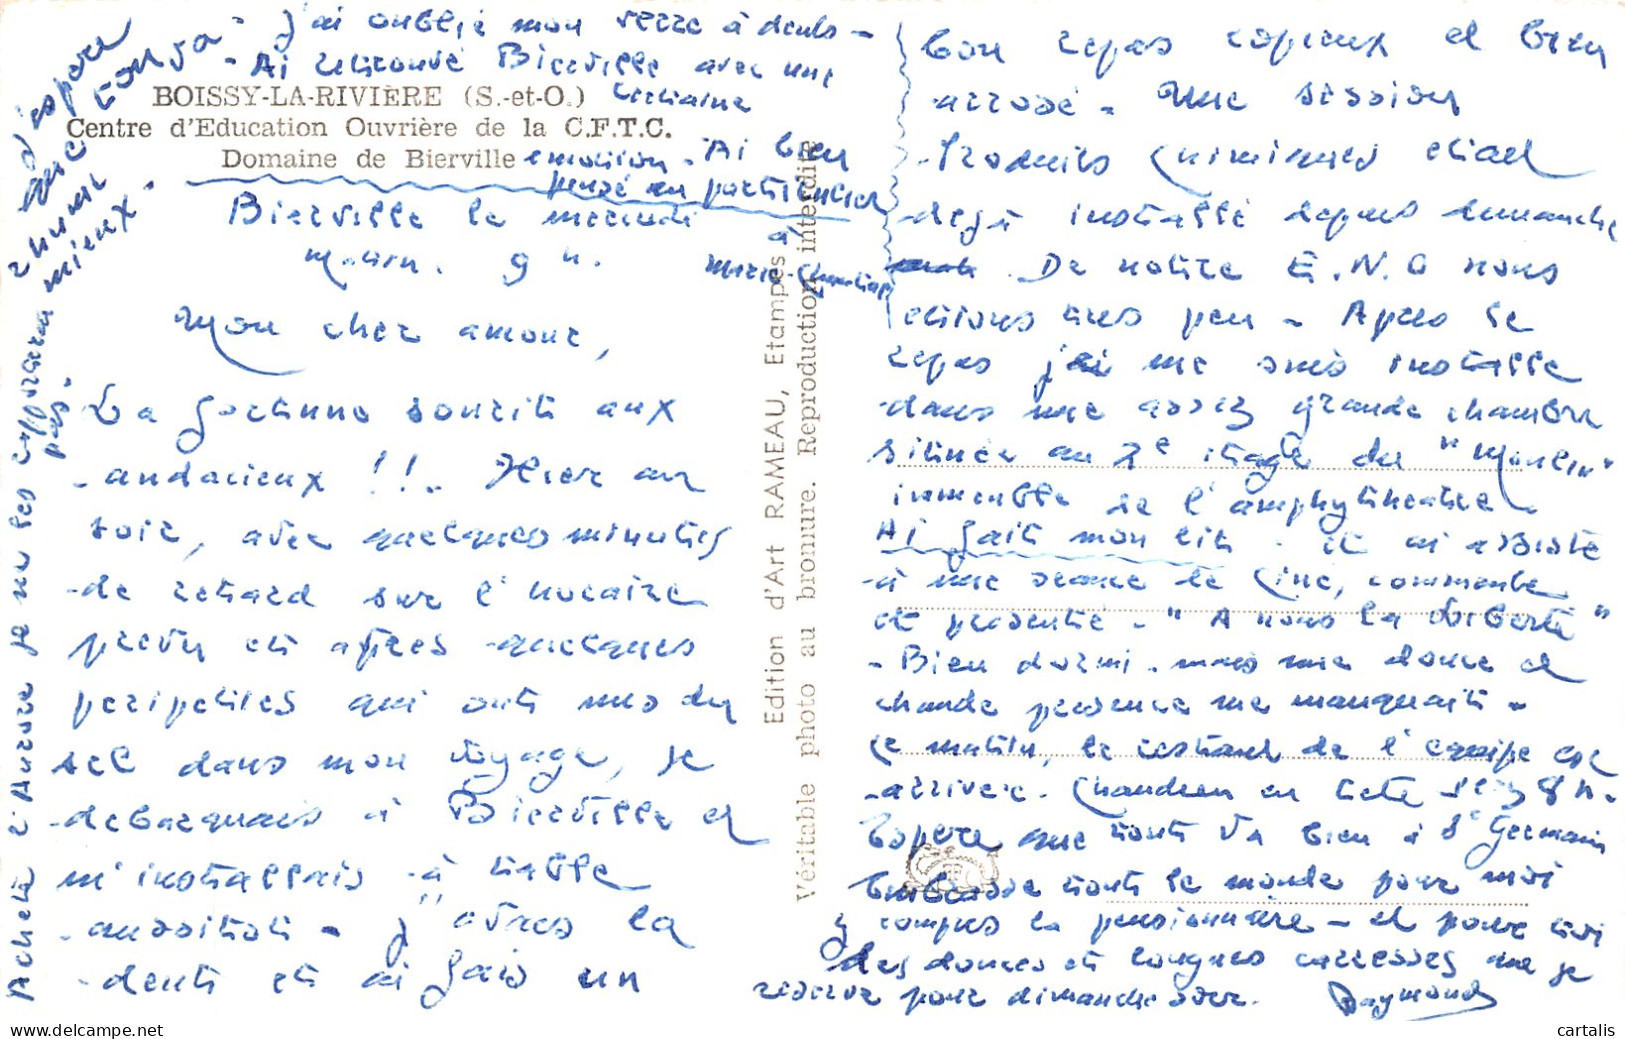 BOISSY-LA-RIVIÈRE (S.-et-O.)
Centre d'Education Ouvrière de la C.F.T.C.
Domaine de Bierville
Bierville le mercredi
matin. 9 h.
Mon cher amour,
La fortune sourit aux
audacieux !!. Hier au
soir, avec quelques minutes
de retard sur l'horaire
prévu et après quelques
péripéties qui ont mis du
sel dans mon voyage, je
débarquais à Bierville et
m'installais à table
aussitôt - j'avais la
dent et ai fais un
bon repas copieux et bien
arrosé - Une session
Produits Chimiques était
déjà installé depuis dimanche
. De notre E.N.O nous
étions très peu - Après le
repas j'ai me suis installé
dans une assez grande chambre
située au 2e étage du "Moulin"
immeuble de l'amphythéatre
Ai fait mon lit - et ai assisté
à une séance de Ciné, commentée
et présenté - "A nous la Liberté"
- Bien dormi - mais une douce et
chaude présence me manquait -
Ce matin, le restant de l'équipe est
arrivée. Chaudron en tête 8 h.
Espère que tout va bien à St Germain
Embrasse tout le monde pour moi
y compris la pensionnaire - et pour toi
des douces et longues caresses que je
réserve pour dimanche soir. Raymond
- J'ai oublié mon verre à dents -
- Ai retrouvé Bierville avec une
certaine
émotion - Ai bien
pensé en particulier
à
Marie-Christine
Acheté l'Aurore je ne les
pas.
J'espère
que ton
rhume va
mieux -
Edition d'Art RAMEAU, Etampes
Véritable photo au bromure. Reproduction interdite
cartalis